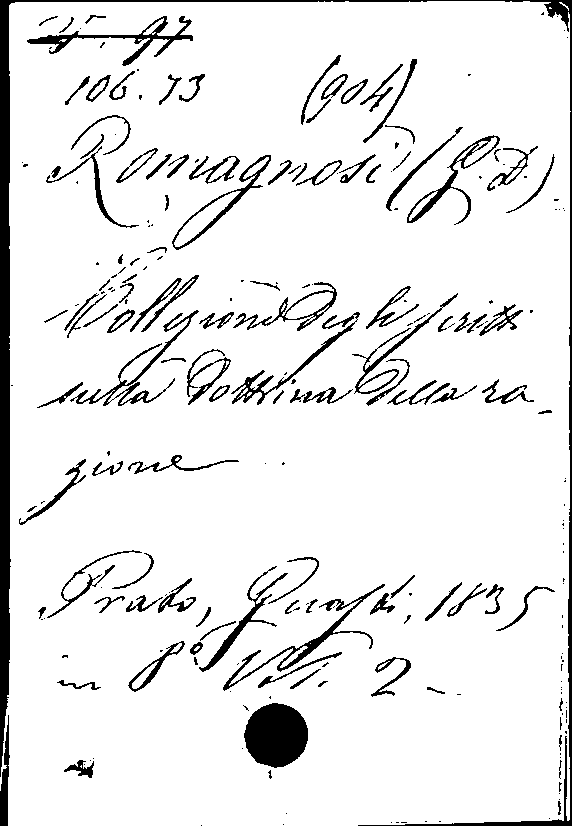 25. 97
106. 73 (904)
Romagnosi (G. D.)
Collezione degli scritti
sulla Dottrina della ra-
gione.
Prato, Guasti, 1835
in 8° Vol. 2-